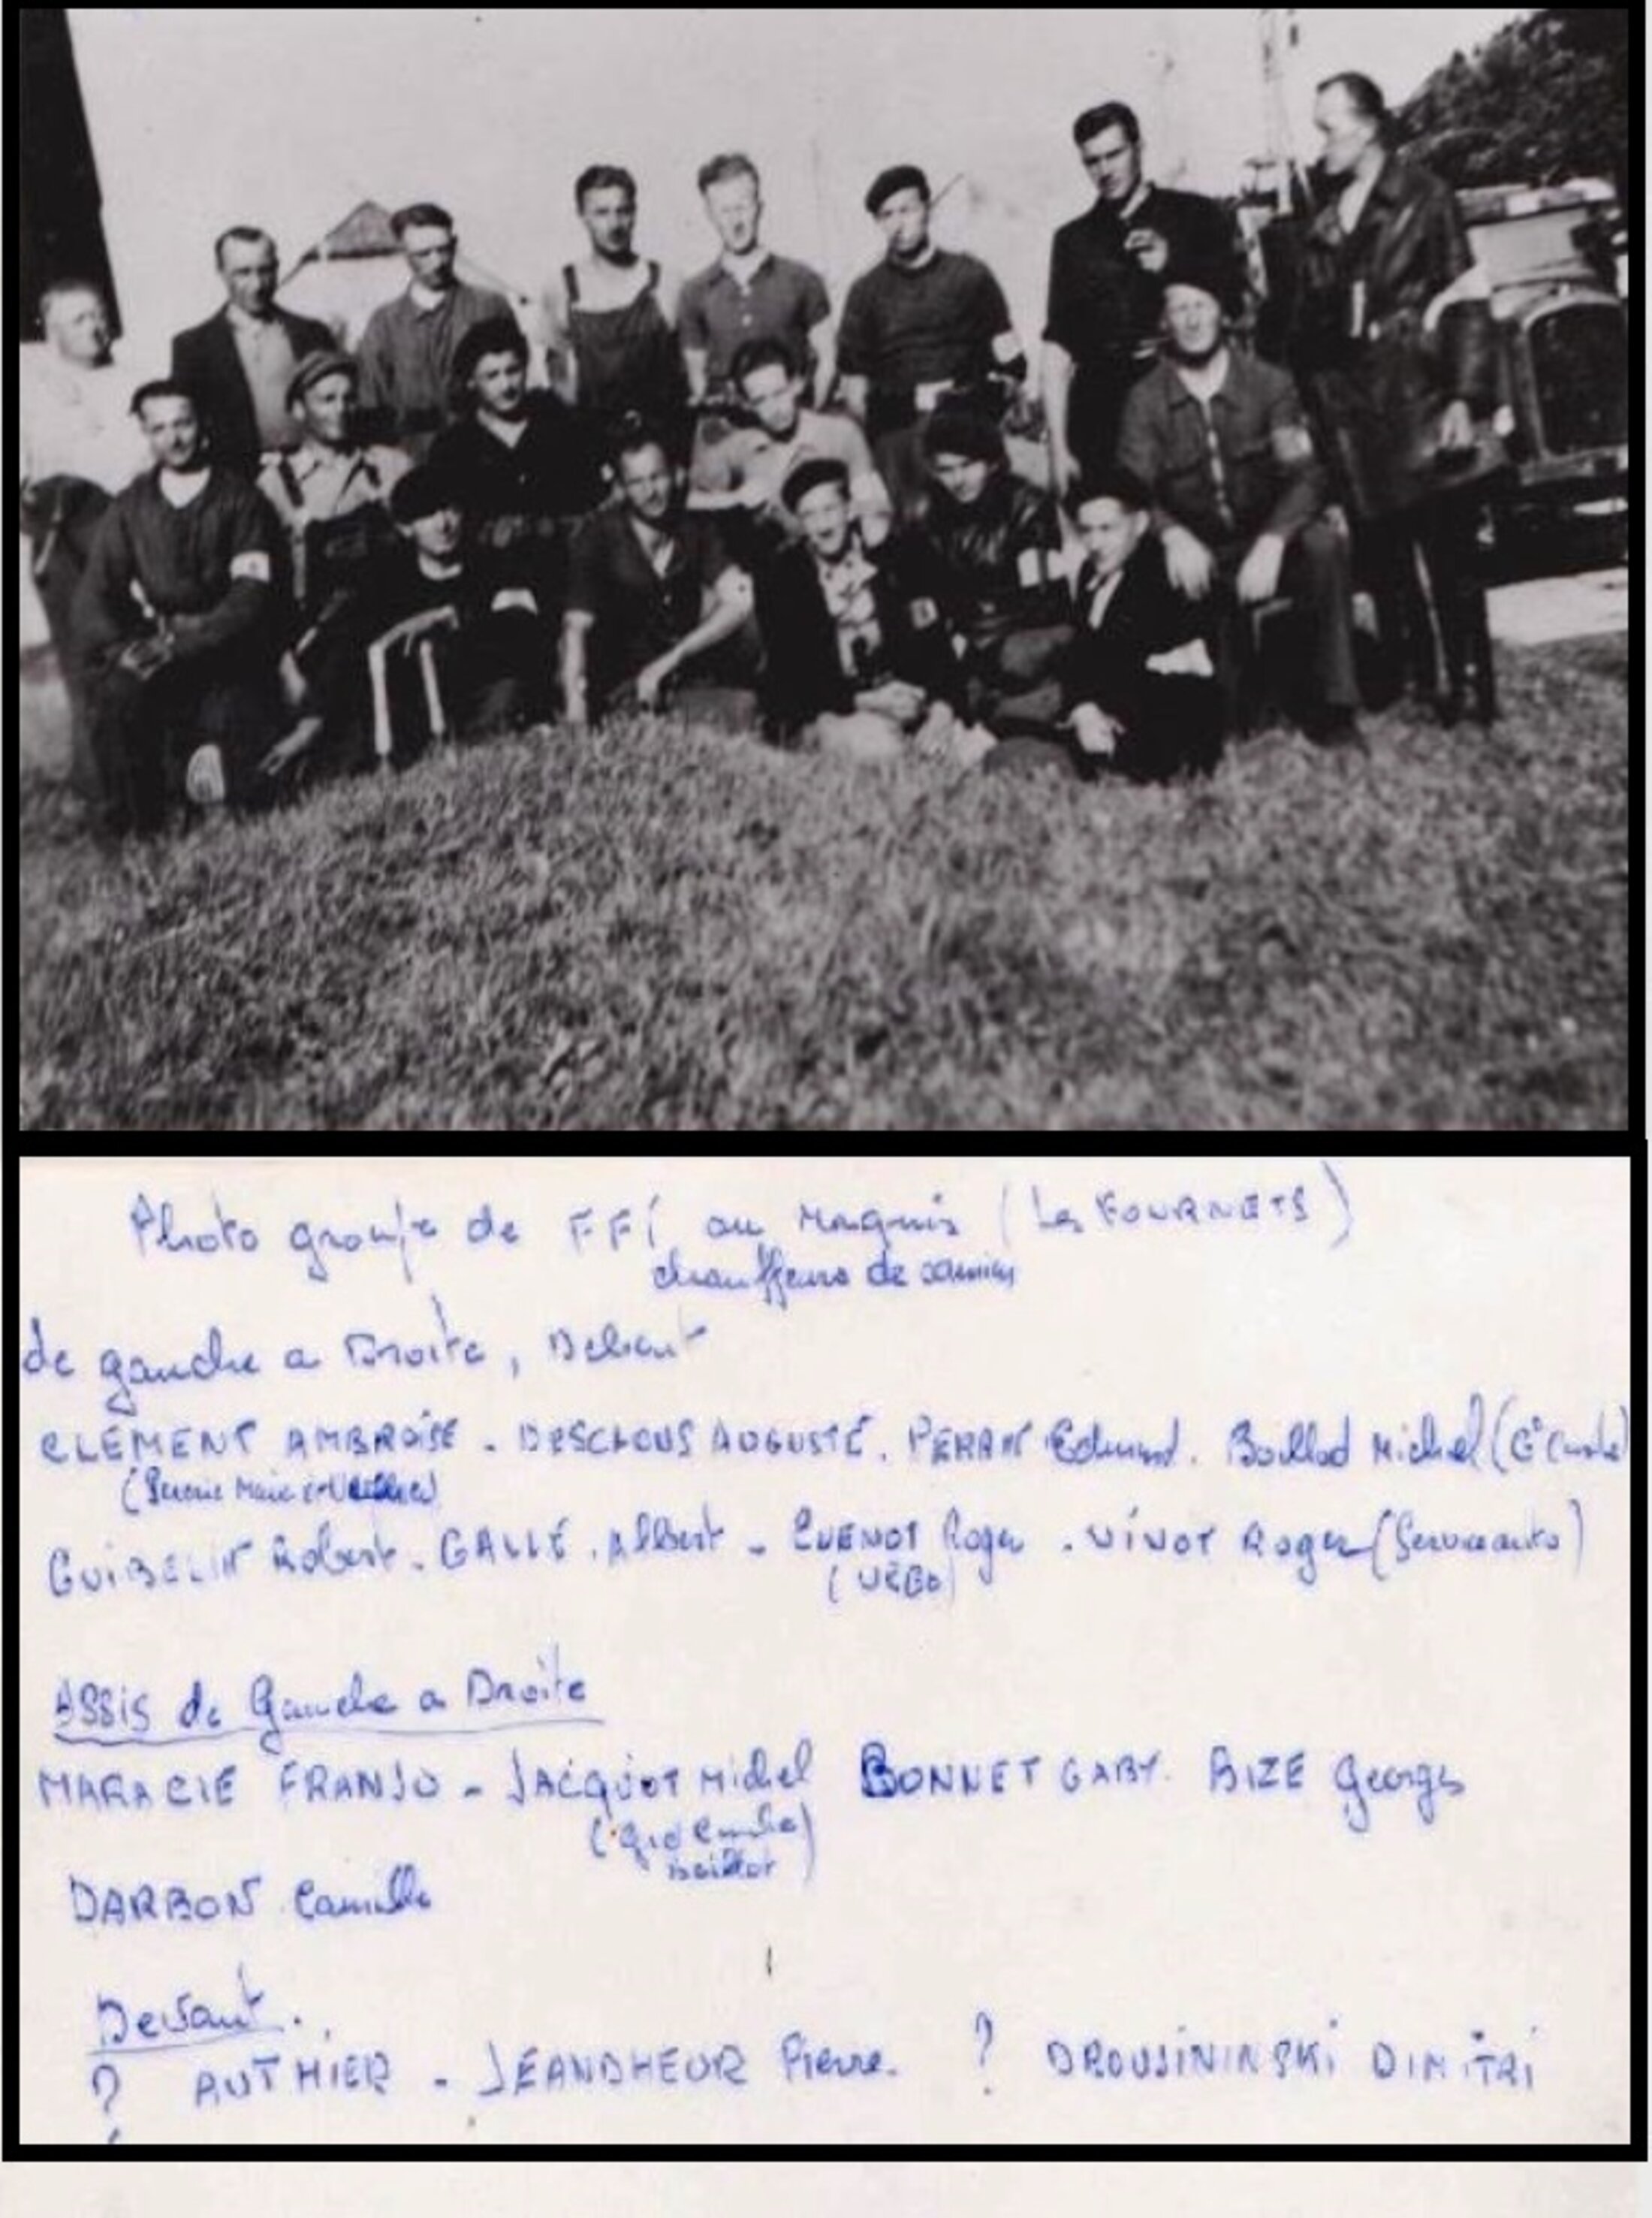 Photo groupe de FFi au Maquis (Les FOURNETS)
chauffeurs de camions
de gauche a Droite, Debout
CLEMENT AMBROISE - DESCLOUS AUGUSTE. PERRIN Edmond. Boillod Michel (Gd Combe)
Mairie
GUIBELIN Robert - GALLE . Albert - CUENOT Roger . VIVOT Roger (Serviceauto)
(VÉBO)
ASSIS de Gauche a Droite
MARACIE FRANJO - JACQUOT Michel BONNET GABY. BIZE Georges
(Grd Combe)
DARBON Camille
Devant.
? AUTHIER - JEANDHEUR Pierre. ? DROUSININSKI DIMITRI